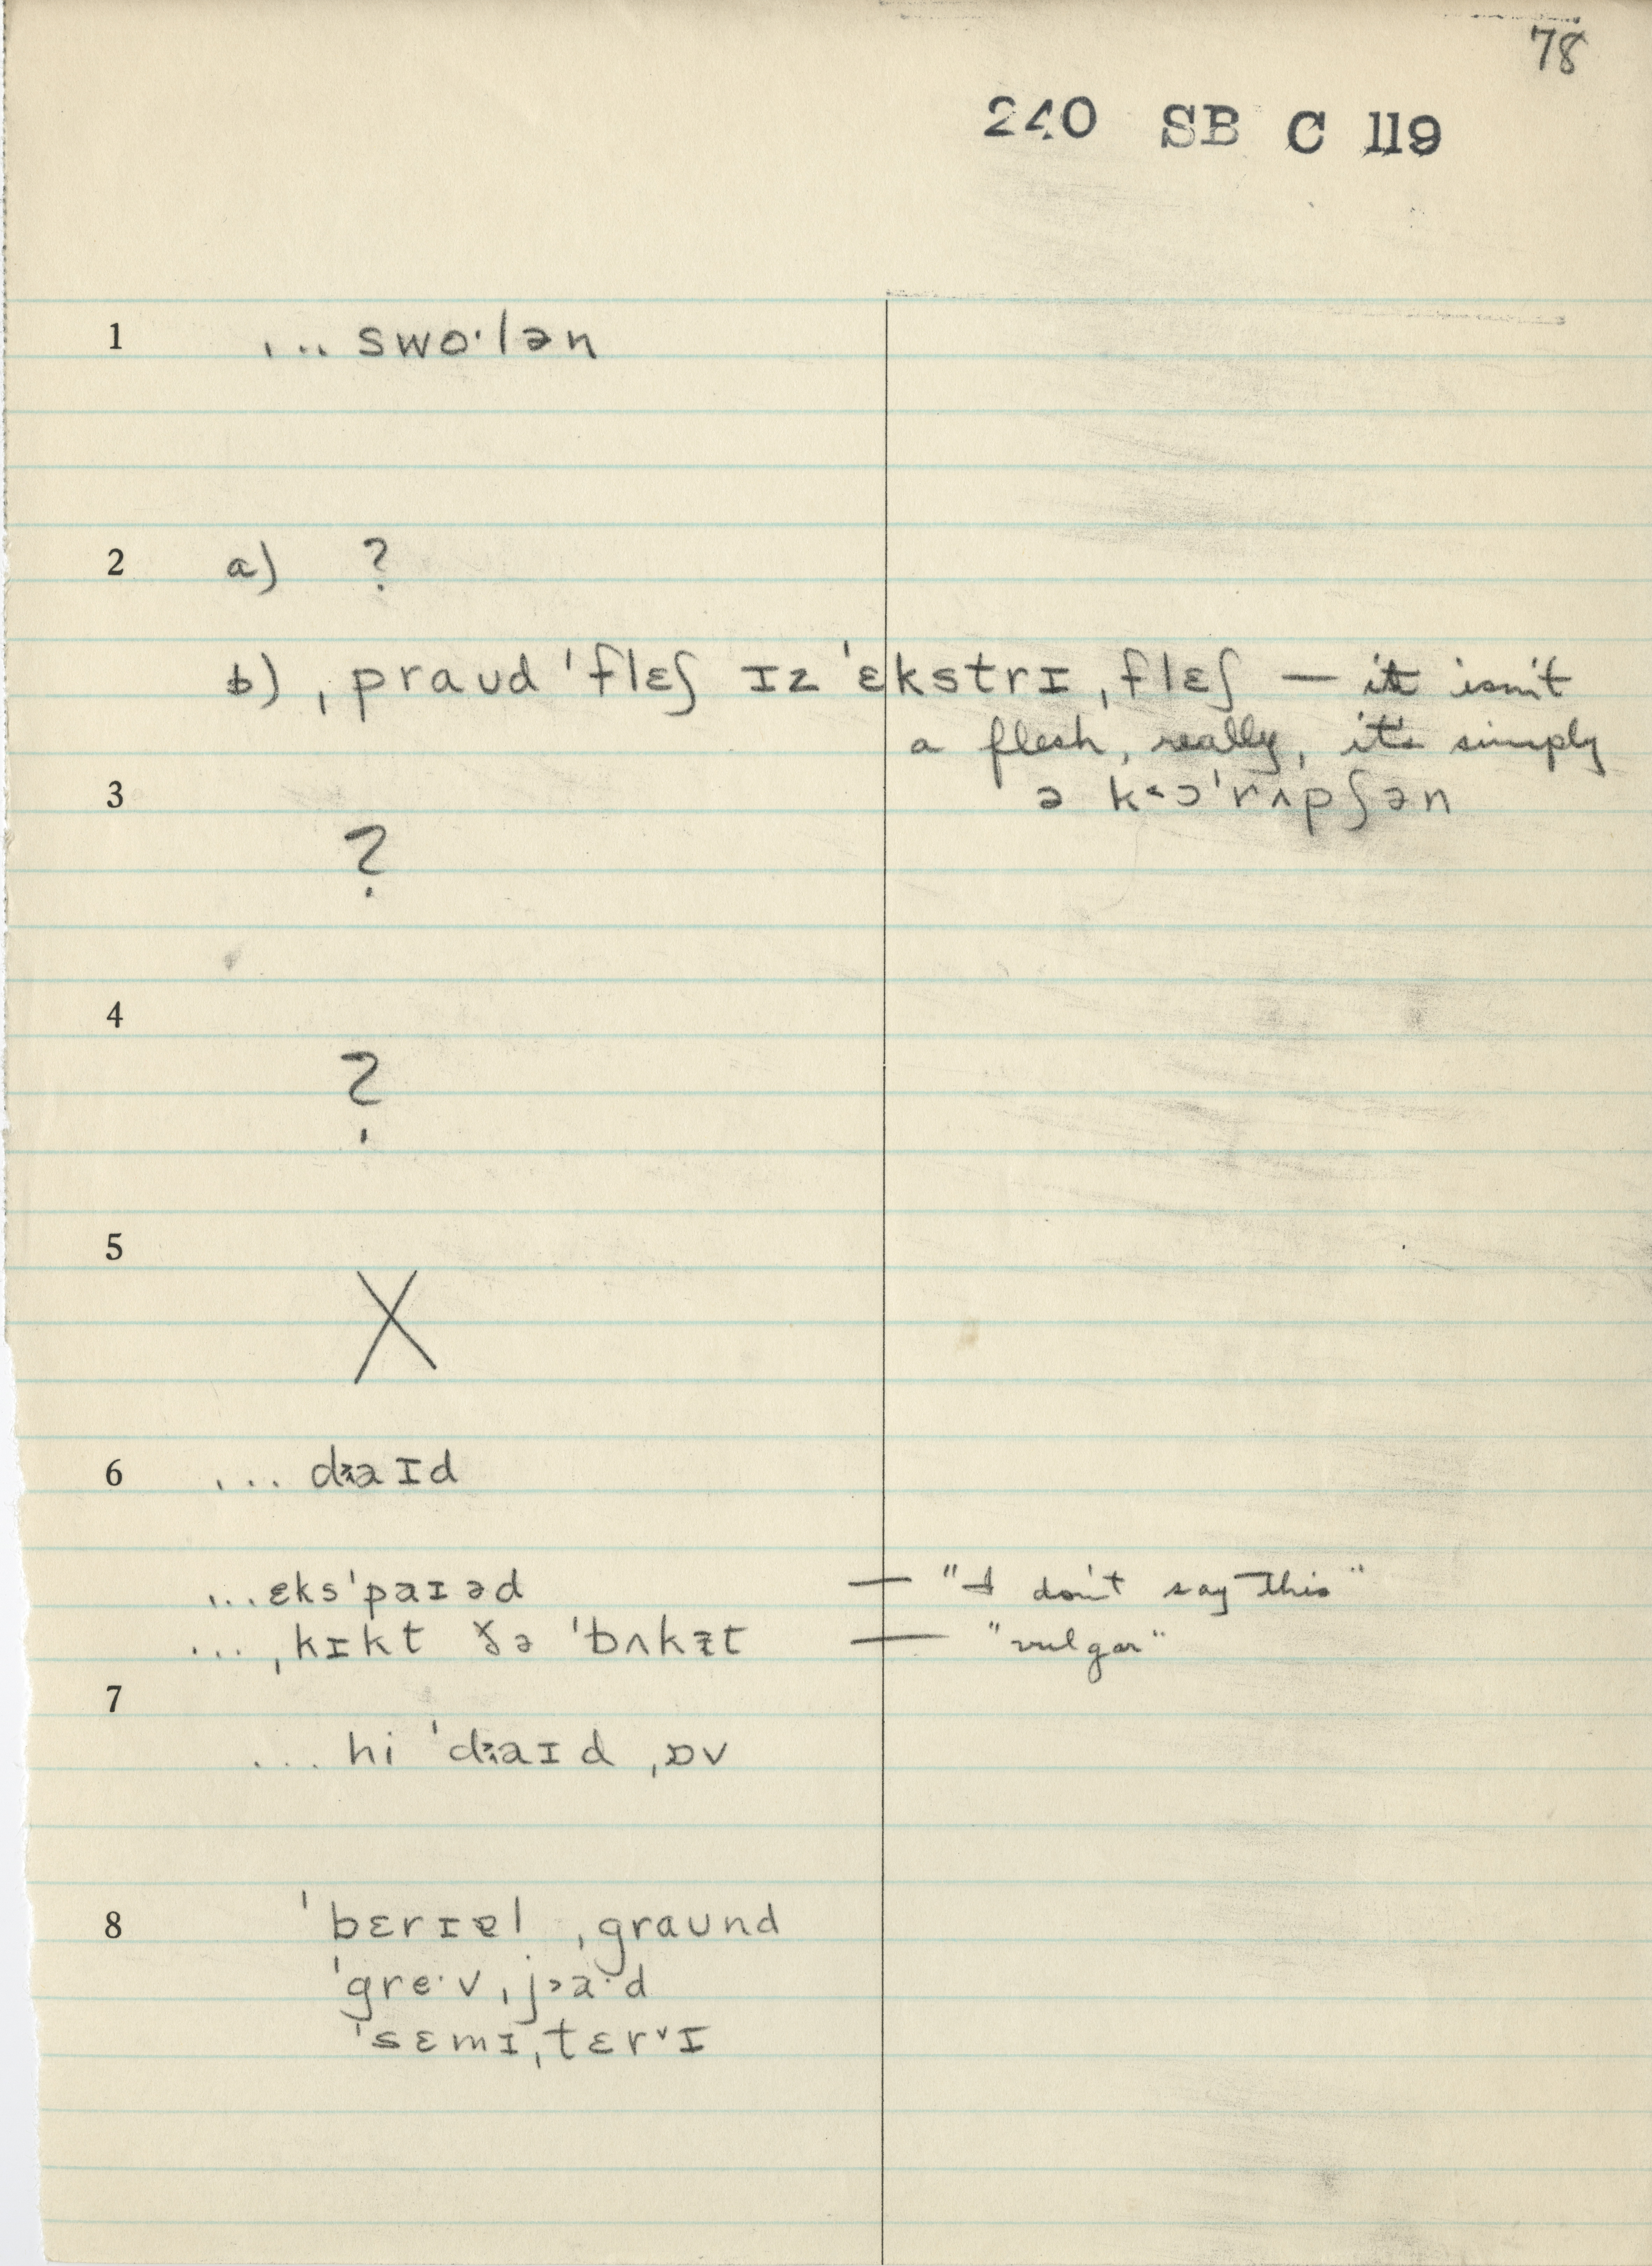 78
240 SB C 119
1 ... swoˑlən
2 a) ?
b) ˌpraʊd ˈflɛʃ ɪz ˈɛkstrɪ ˌflɛʃ — it isn't
a flesh, really, it's simply
3 ə k˂ɔˈrʌpʃən
?
4
?
5
X
6 ... daɪd
... ɛksˈpaɪəd — "I don't say this"
... ˌkɪkt ðə ˈbʌkɪt — "vulgar"
7
... hi ˈdaɪd ˌɒv
8 ˈbɛrɪɐl ˌgraʊnd
ˈgreˑv ˌjaˑd
ˈsɛmɪˌtɛr˅ɪ